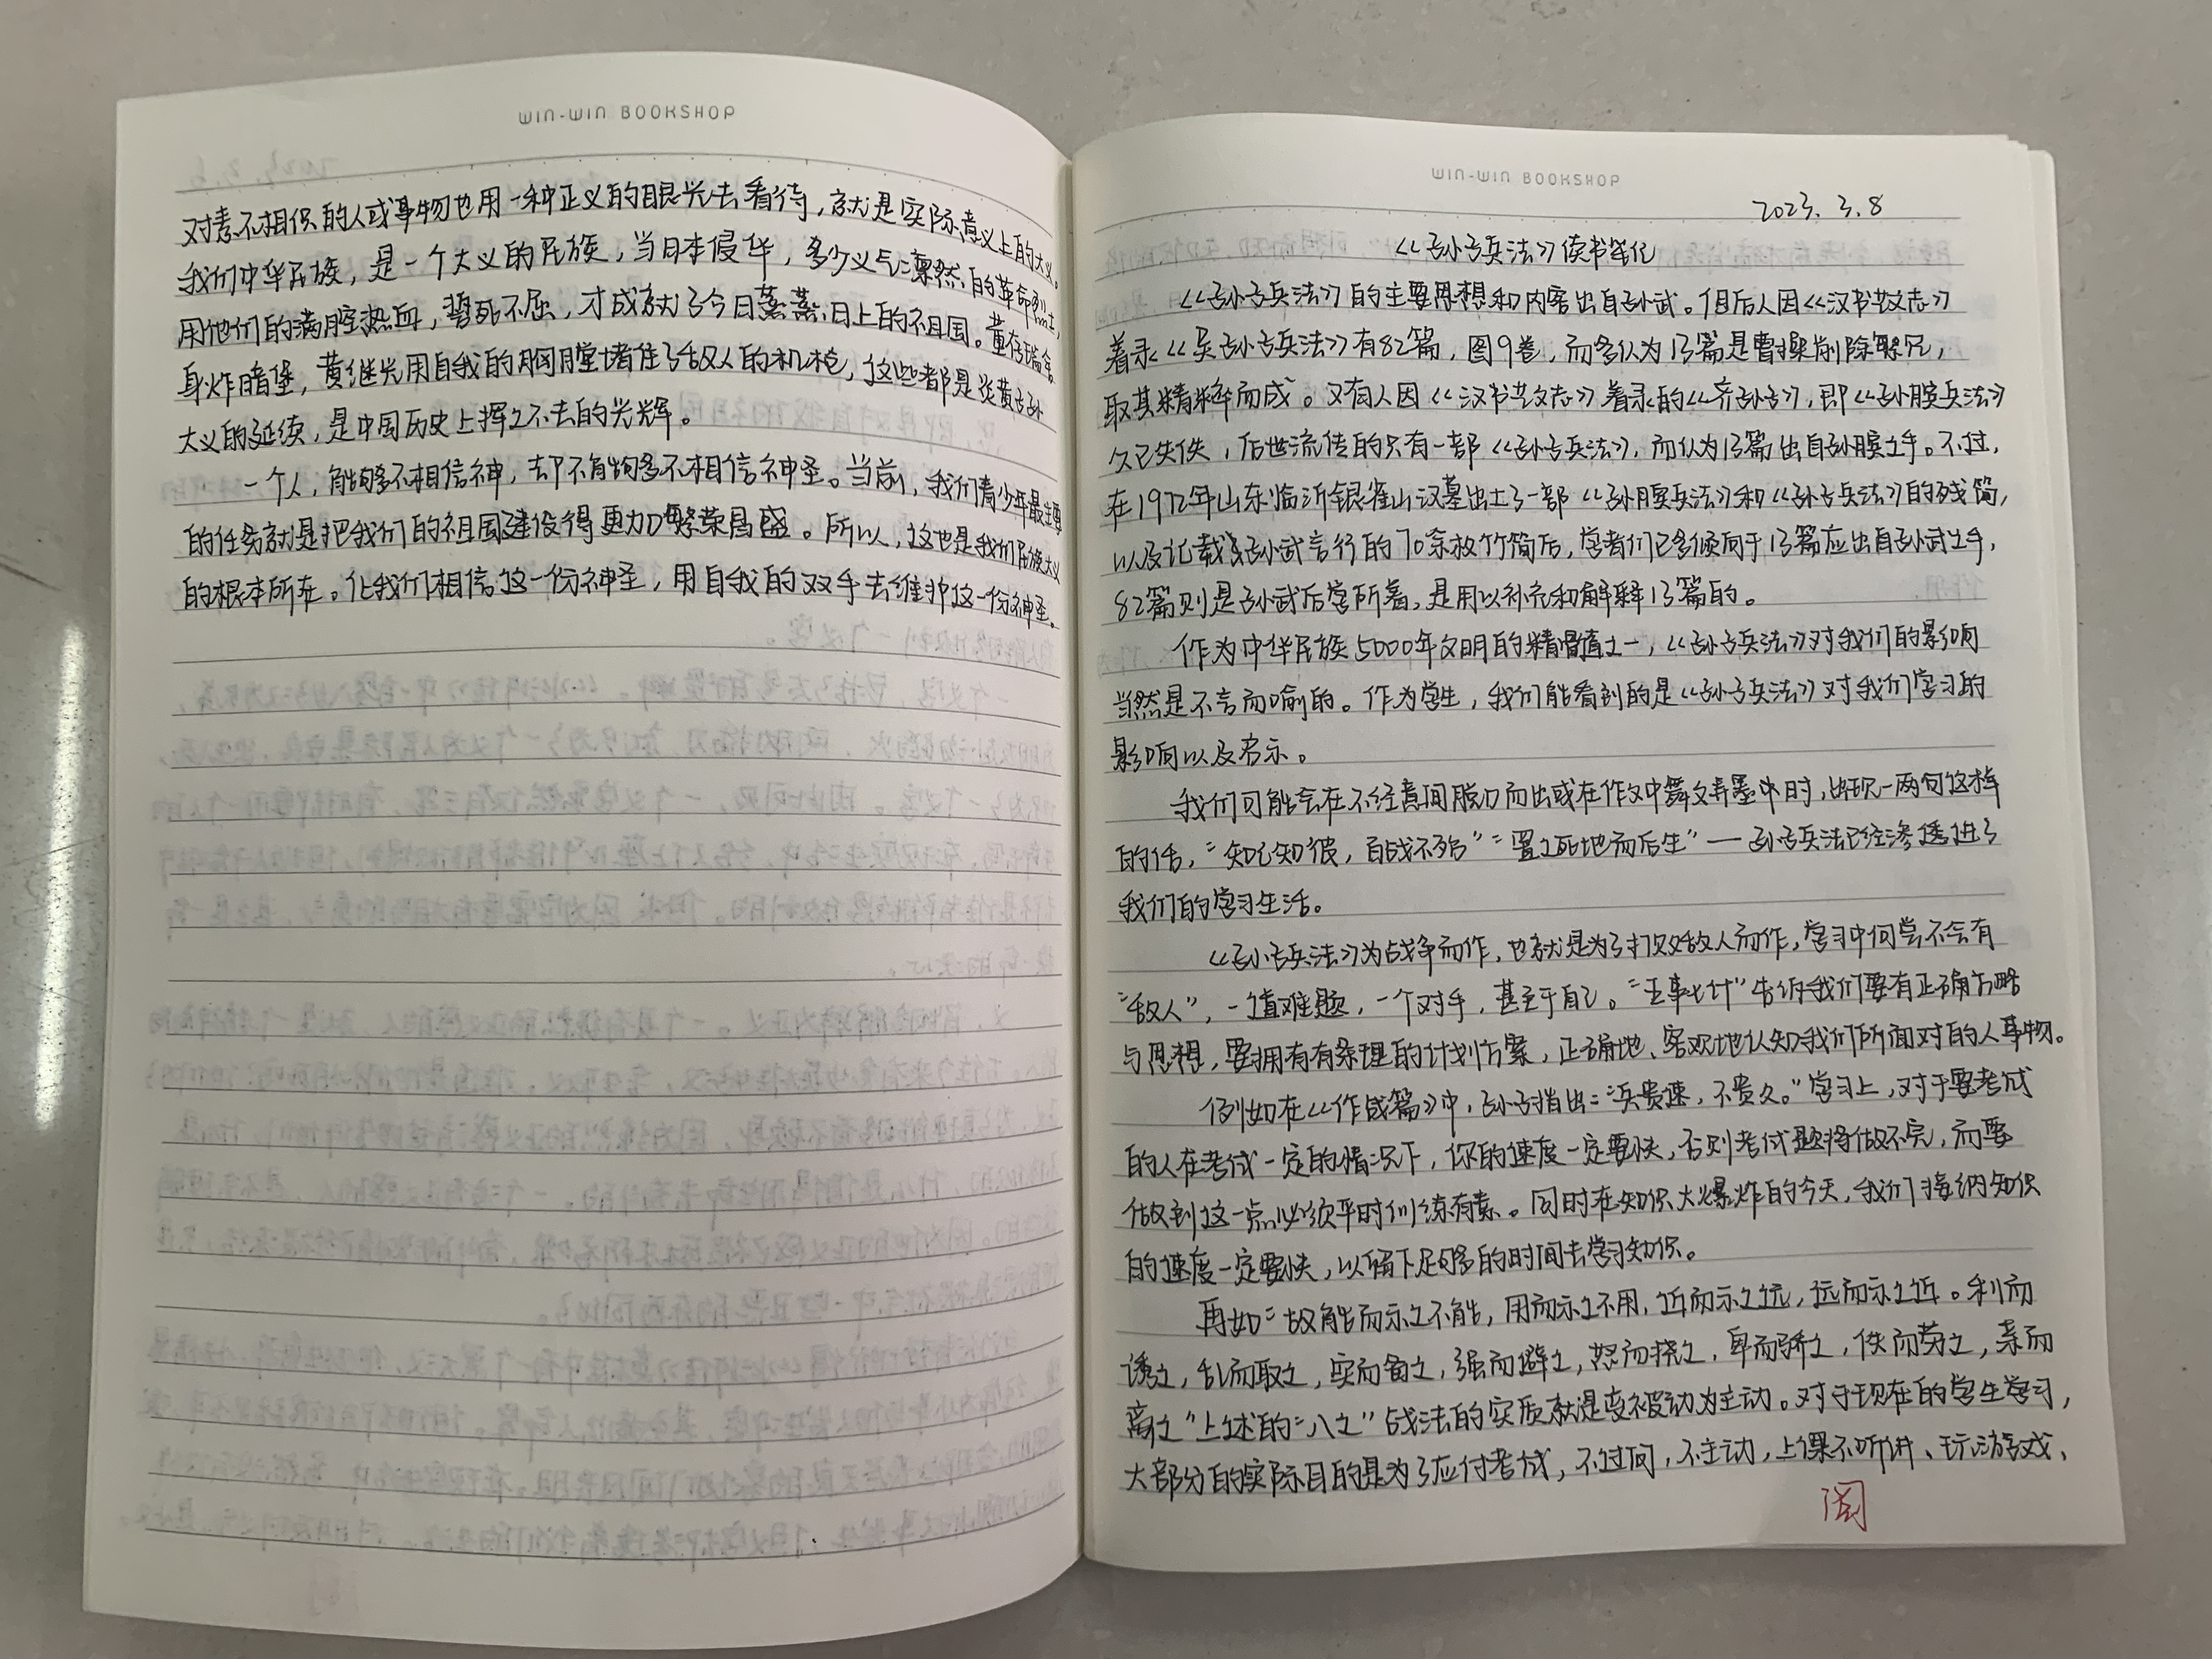 WIN-WIN BOOKSHOP
对素不相识的人或事物也用一种正义的眼光去看待，就是实际意义上的大义。
我们中华民族，是一个大义的民族，当日本侵华，多少义气凛然的革命烈士，
用他们的满腔热血，誓死不屈，才成就了今日蒸蒸日上的祖国。董存瑞舍
身炸暗堡，黄继光用自我的胸膛堵住了敌人的机枪，这些都是炎黄子孙
大义的延续，是中国历史上挥之不去的光辉。
一个人，能够不相信神，却不能够不相信神圣。当前，我们青少年最主要
的任务就是把我们的祖国建设得更加繁荣昌盛。所以，这也是我们民族大义
的根本所在。让我们相信这一份神圣，用自我的双手去维护这一份神圣。
WIN-WIN BOOKSHOP
2023.3.8
《孙子兵法》读书笔记
《孙子兵法》的主要思想和内容出自孙武。但后人因《汉书艺文志》
着录《吴孙子兵法》有82篇，图9卷，而多认为13篇是曹操削除繁冗，
取其精粹而成。又有人因《汉书艺文志》着录的《齐孙子》，即《孙膑兵法》
久已失佚，后世流传的只有一部《孙子兵法》，而认为13篇出自孙膑之手。不过，
在1972年山东临沂银雀山汉墓出土了一部《孙膑兵法》和《孙子兵法》的残简，
以及记载孙武言行的70余枚竹简后，学者们已多倾向于13篇应出自孙武之手，
82篇则是孙武后学所着，是用以补充和解释13篇的。
作为中华民族5000年文明的精髓之一，《孙子兵法》对我们的影响
当然是不言而喻的。作为学生，我们能看到的是《孙子兵法》对我们学习的
影响以及启示。
我们可能会在不经意间脱口而出或在作文中舞文弄墨中时，出现一两句这样
的话，“知己知彼，百战不殆”“置之死地而后生”—孙子兵法已经渗透进了
我们的学习生活。
《孙子兵法》为战争而作，也就是为了打败敌人而作，学习中何尝不会有
“敌人”，一道难题，一个对手，甚至于自己。“五事七计”告诉我们要有正确方略
与思想，要拥有有条理的计划方案，正确地、客观地认知我们所面对的人事物。
例如在《作战篇》中，孙子指出：“兵贵速，不贵久。”学习上，对于要考试
的人在考试一定的情况下，你的速度一定要快，否则考试题将做不完，而要
做到这一点必须平时训练有素。同时在知识大爆炸的今天，我们接纳知识
的速度一定要快，以留下足够的时间去学习知识。
再如“故能而示之不能，用而示之不用，近而示之远，远而示之近。利而
诱之，乱而取之，实而备之，强而避之，怒而挠之，卑而骄之，佚而劳之，亲而
离之”上述的“八之”战法的实质就是变被动为主动。对于现在的学生学习，
大部分的实际目的是为了应付考试，不过问，不主动，上课不听讲、玩游戏、
阅